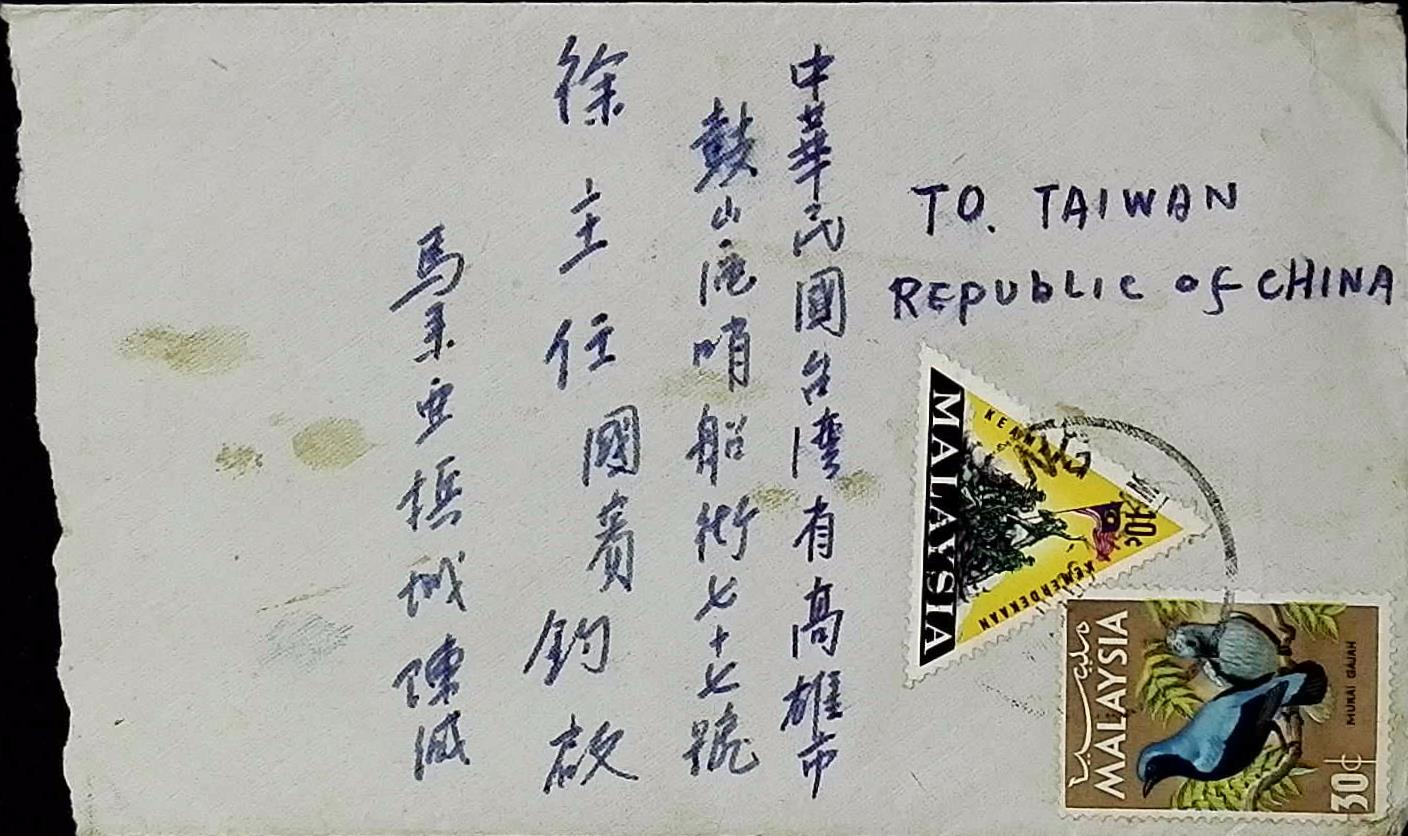 TO. TAIWAN
REpublic of CHINA
中華民國台湾省高雄市
鼓山區哨船街七十七號
徐主任國賓鈞啟
馬来亚梹城陳緘
MALAYSIA
KEMERDEKAAN
10c
MALAYSIA
MURAI GAJAH
30¢